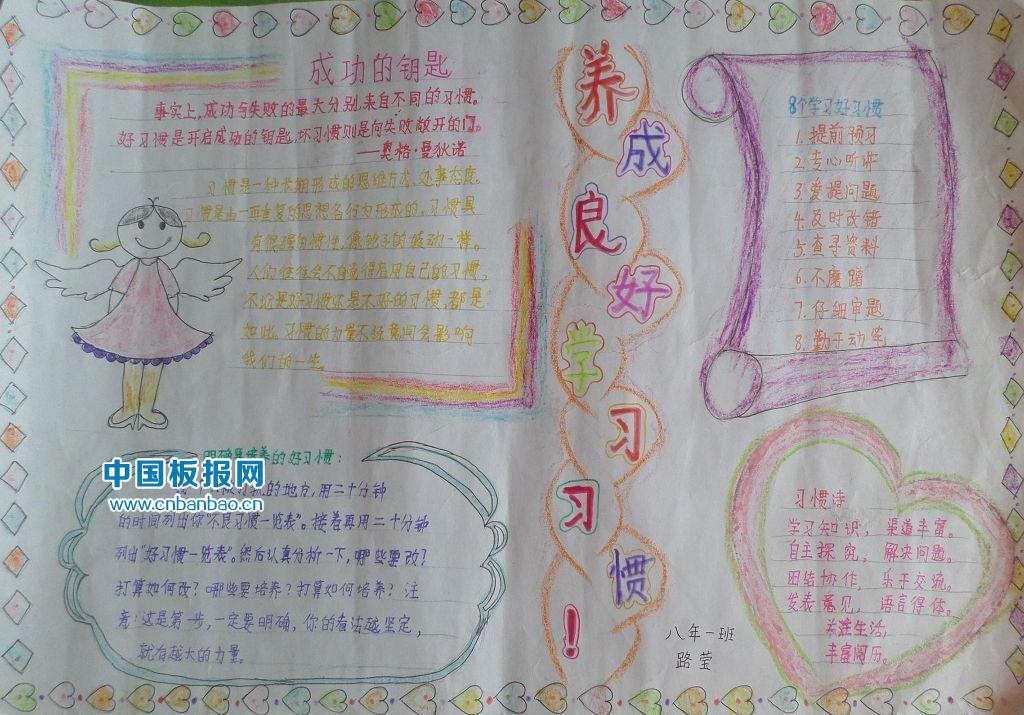 成功的钥匙
事实上,成功与失败的最大分别,来自不同的习惯。
好习惯是开启成功的钥匙,坏习惯则是向失败敞开的门。
——奥格·曼狄诺
习惯是一种长期形成的思维方式、处事态度。
习惯是由一再重复的思想各行为形成的,习惯具
有很强的惯性,像轮子的转动一样。
人们往往会不自觉得启用自己的习惯,
不论是好习惯还是不好的习惯,都是
如此。习惯的力量不经意间会影响
我们的一生。
养成良好学习习惯!
8个学习好习惯
1.提前预习
2.专心听讲
3.爱提问题
4.及时改错
5.查寻资料
6.不磨蹭
7.仔细审题
8.勤于动笔
培养的好习惯:
的地方,用二十分钟
的时间列出你"不良习惯一览表"。接着再用二十分钟
列出"好习惯一览表"。然后认真分析一下,哪些要改?
打算如何改?哪些要培养?打算如何培养?注
意:这是第一步,一定要明确,你的看法越坚定,
就有越大的力量。
中国板报网
www.cnbanbao.cn
习惯诗
学习知识,渠道丰富。
自主探究,解决问题。
团结协作,乐于交流。
发表意见,语言得体。
关注生活,
丰富阅历。
八年一班
路莹